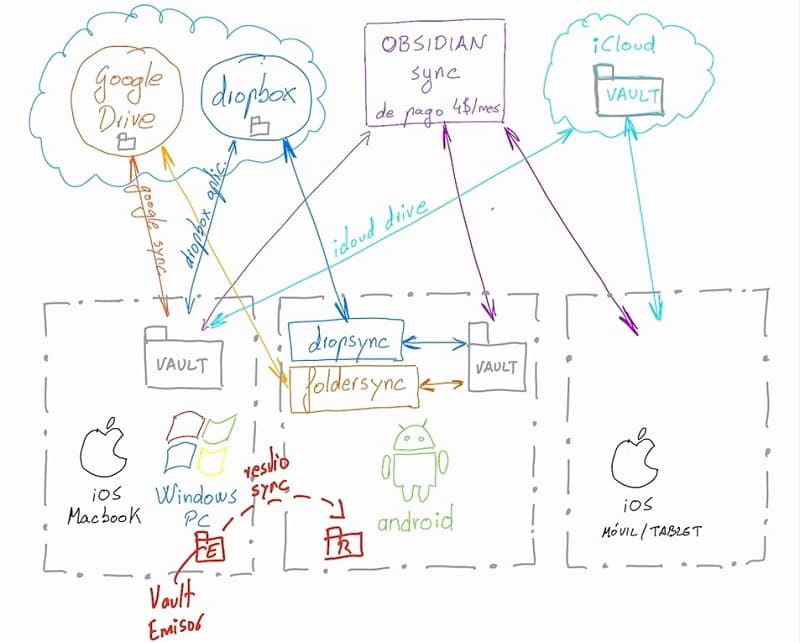 Google
Drive
dropbox
OBSIDIAN
sync
de pago 4$/mes
iCloud
VAULT
google sync
dropbox aplic.
icloud drive
VAULT
dropsync
foldersync
VAULT
iOS
Macbook
Windows
PC
resilio
sync
android
iOS
MÓVIL/TABLET
E
R
Vault
Emisor